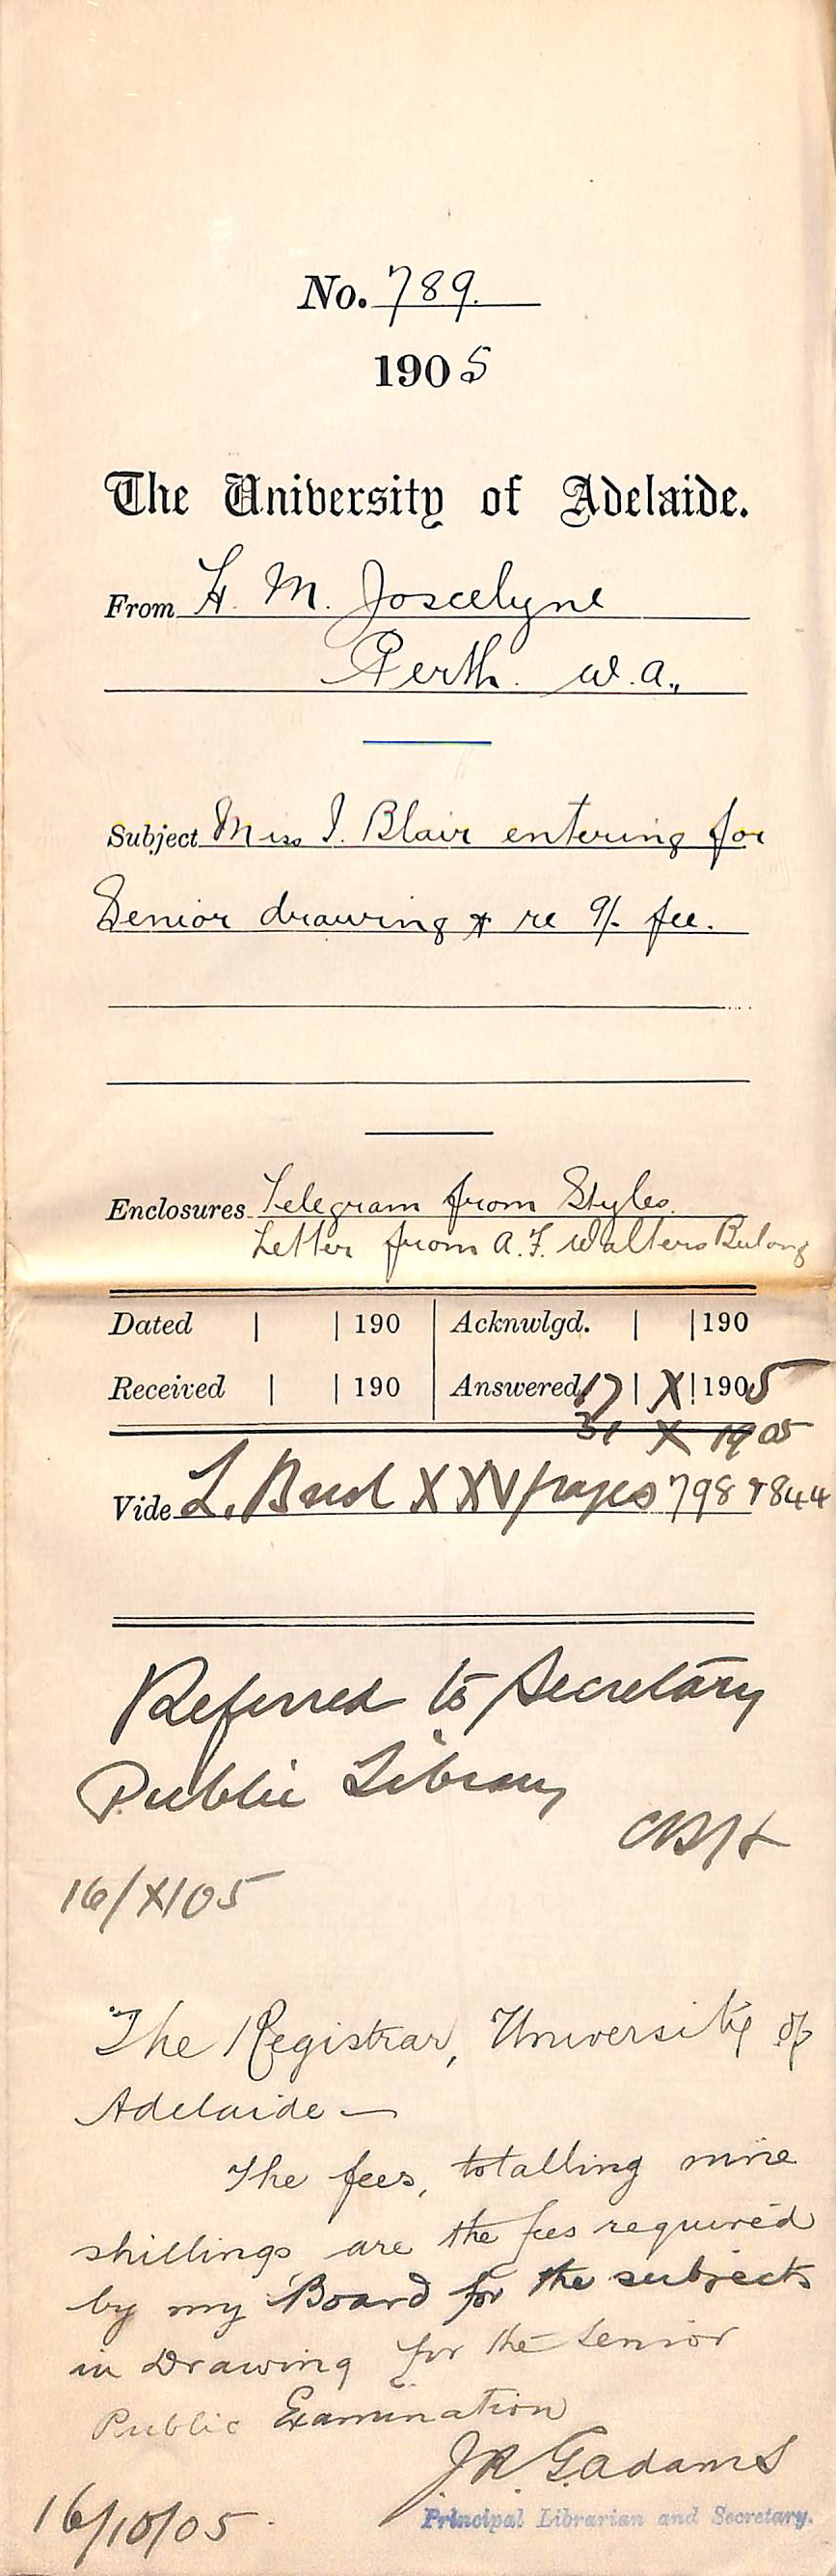 No. 789.
1905
The University of Adelaide.
From H. M. Joscelyne
Perth. W.A.,
Subject Miss I. Blair entering for
Senior drawing & re 9/- fee.
Enclosures Telegram from Styles.
Letter from A. F. Walters Bulong
Dated | | 190 Acknwlgd. | | 190
Received | | 190 Answered 17 | X | 1905
31 X 1905
Vide L. Book XXV pages 798 & 844
Referred to Secretary
Public Library
16/X/05
The Registrar, University of
Adelaide —
The fees, totalling nine
shillings are the fees required
by my Board for the subjects
in Drawing for the Senior
Public Examination
J.R.G. Adams
16/10/05. Principal Librarian and Secretary.